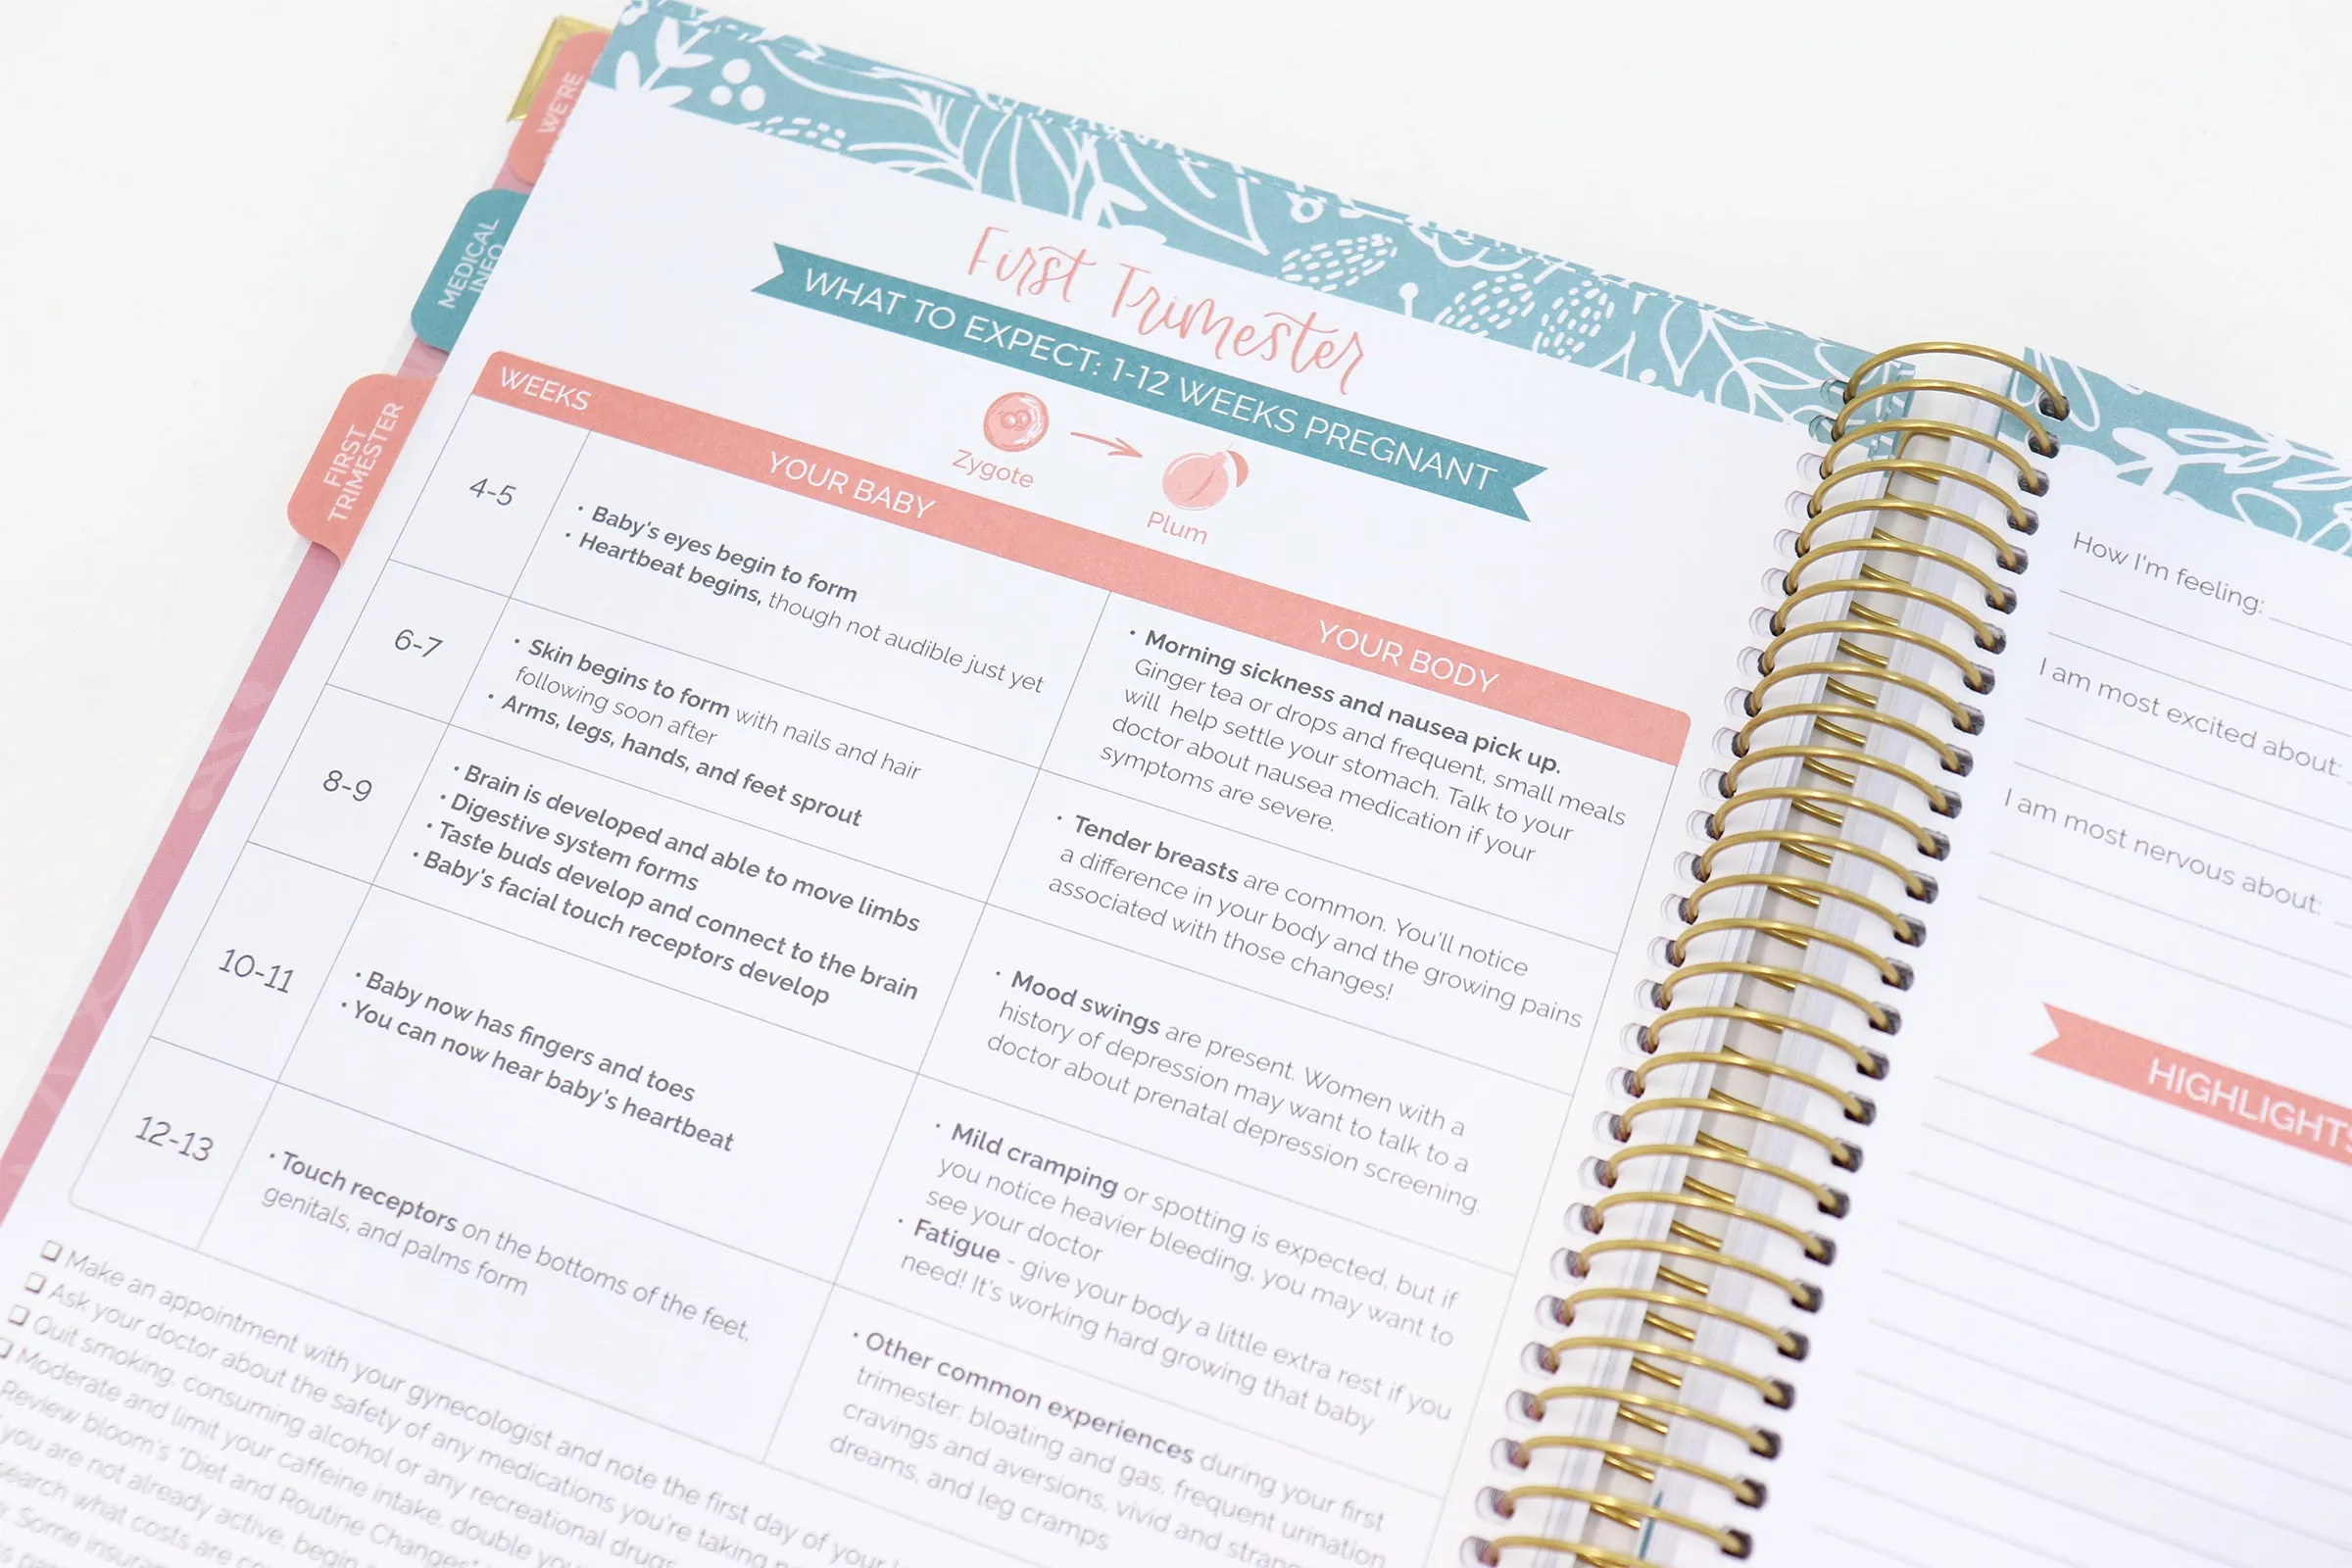 WE'RE
MEDICAL
INFO
FIRST
TRIMESTER
First Trimester
WHAT TO EXPECT: 1-12 WEEKS PREGNANT
Zygote
Plum
WEEKS
YOUR BABY
YOUR BODY
4-5
• Baby's eyes begin to form
• Heartbeat begins, though not audible just yet
• Morning sickness and nausea pick up.
Ginger tea or drops and frequent, small meals
will help settle your stomach. Talk to your
doctor about nausea medication if your
symptoms are severe.
6-7
• Skin begins to form with nails and hair
following soon after
• Arms, legs, hands, and feet sprout
• Tender breasts are common. You'll notice
a difference in your body and the growing pains
associated with those changes!
8-9
• Brain is developed and able to move limbs
• Digestive system forms
• Taste buds develop and connect to the brain
• Baby's facial touch receptors develop
• Mood swings are present. Women with a
history of depression may want to talk to a
doctor about prenatal depression screening.
10-11
• Baby now has fingers and toes
• You can now hear baby's heartbeat
• Mild cramping or spotting is expected, but if
you notice heavier bleeding, you may want to
see your doctor
• Fatigue - give your body a little extra rest if you
need! It's working hard growing that baby
12-13
• Touch receptors on the bottoms of the feet,
genitals, and palms form
• Other common experiences during your first
trimester: bloating and gas, frequent urination
cravings and aversions, vivid and strange
dreams, and leg cramps
Make an appointment with your gynecologist and note the first day of your
Ask your doctor about the safety of any medications you're taking
Quit smoking, consuming alcohol or any recreational drugs
Moderate and limit your caffeine intake, double
Review bloom's "Diet and Routine Changes"
you are not already active, begin
what costs are
Some
How I'm feeling:
I am most excited about:
I am most nervous about:
HIGHLIGHTS